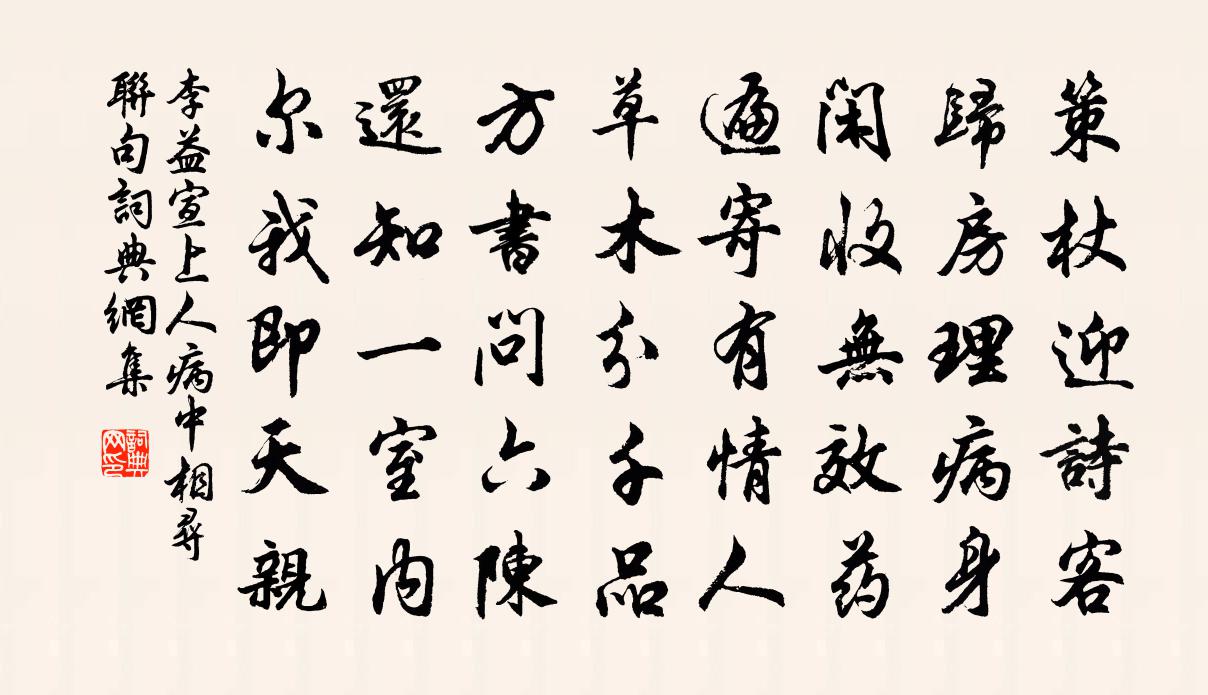 策杖迎詩客
歸房理病身
閑收無效药
遍寄有情人
草木分千品
方書問六陳
還知一室內
尔我即天親
李益宣上人病中相尋
聯句詞典網集
詞典网印